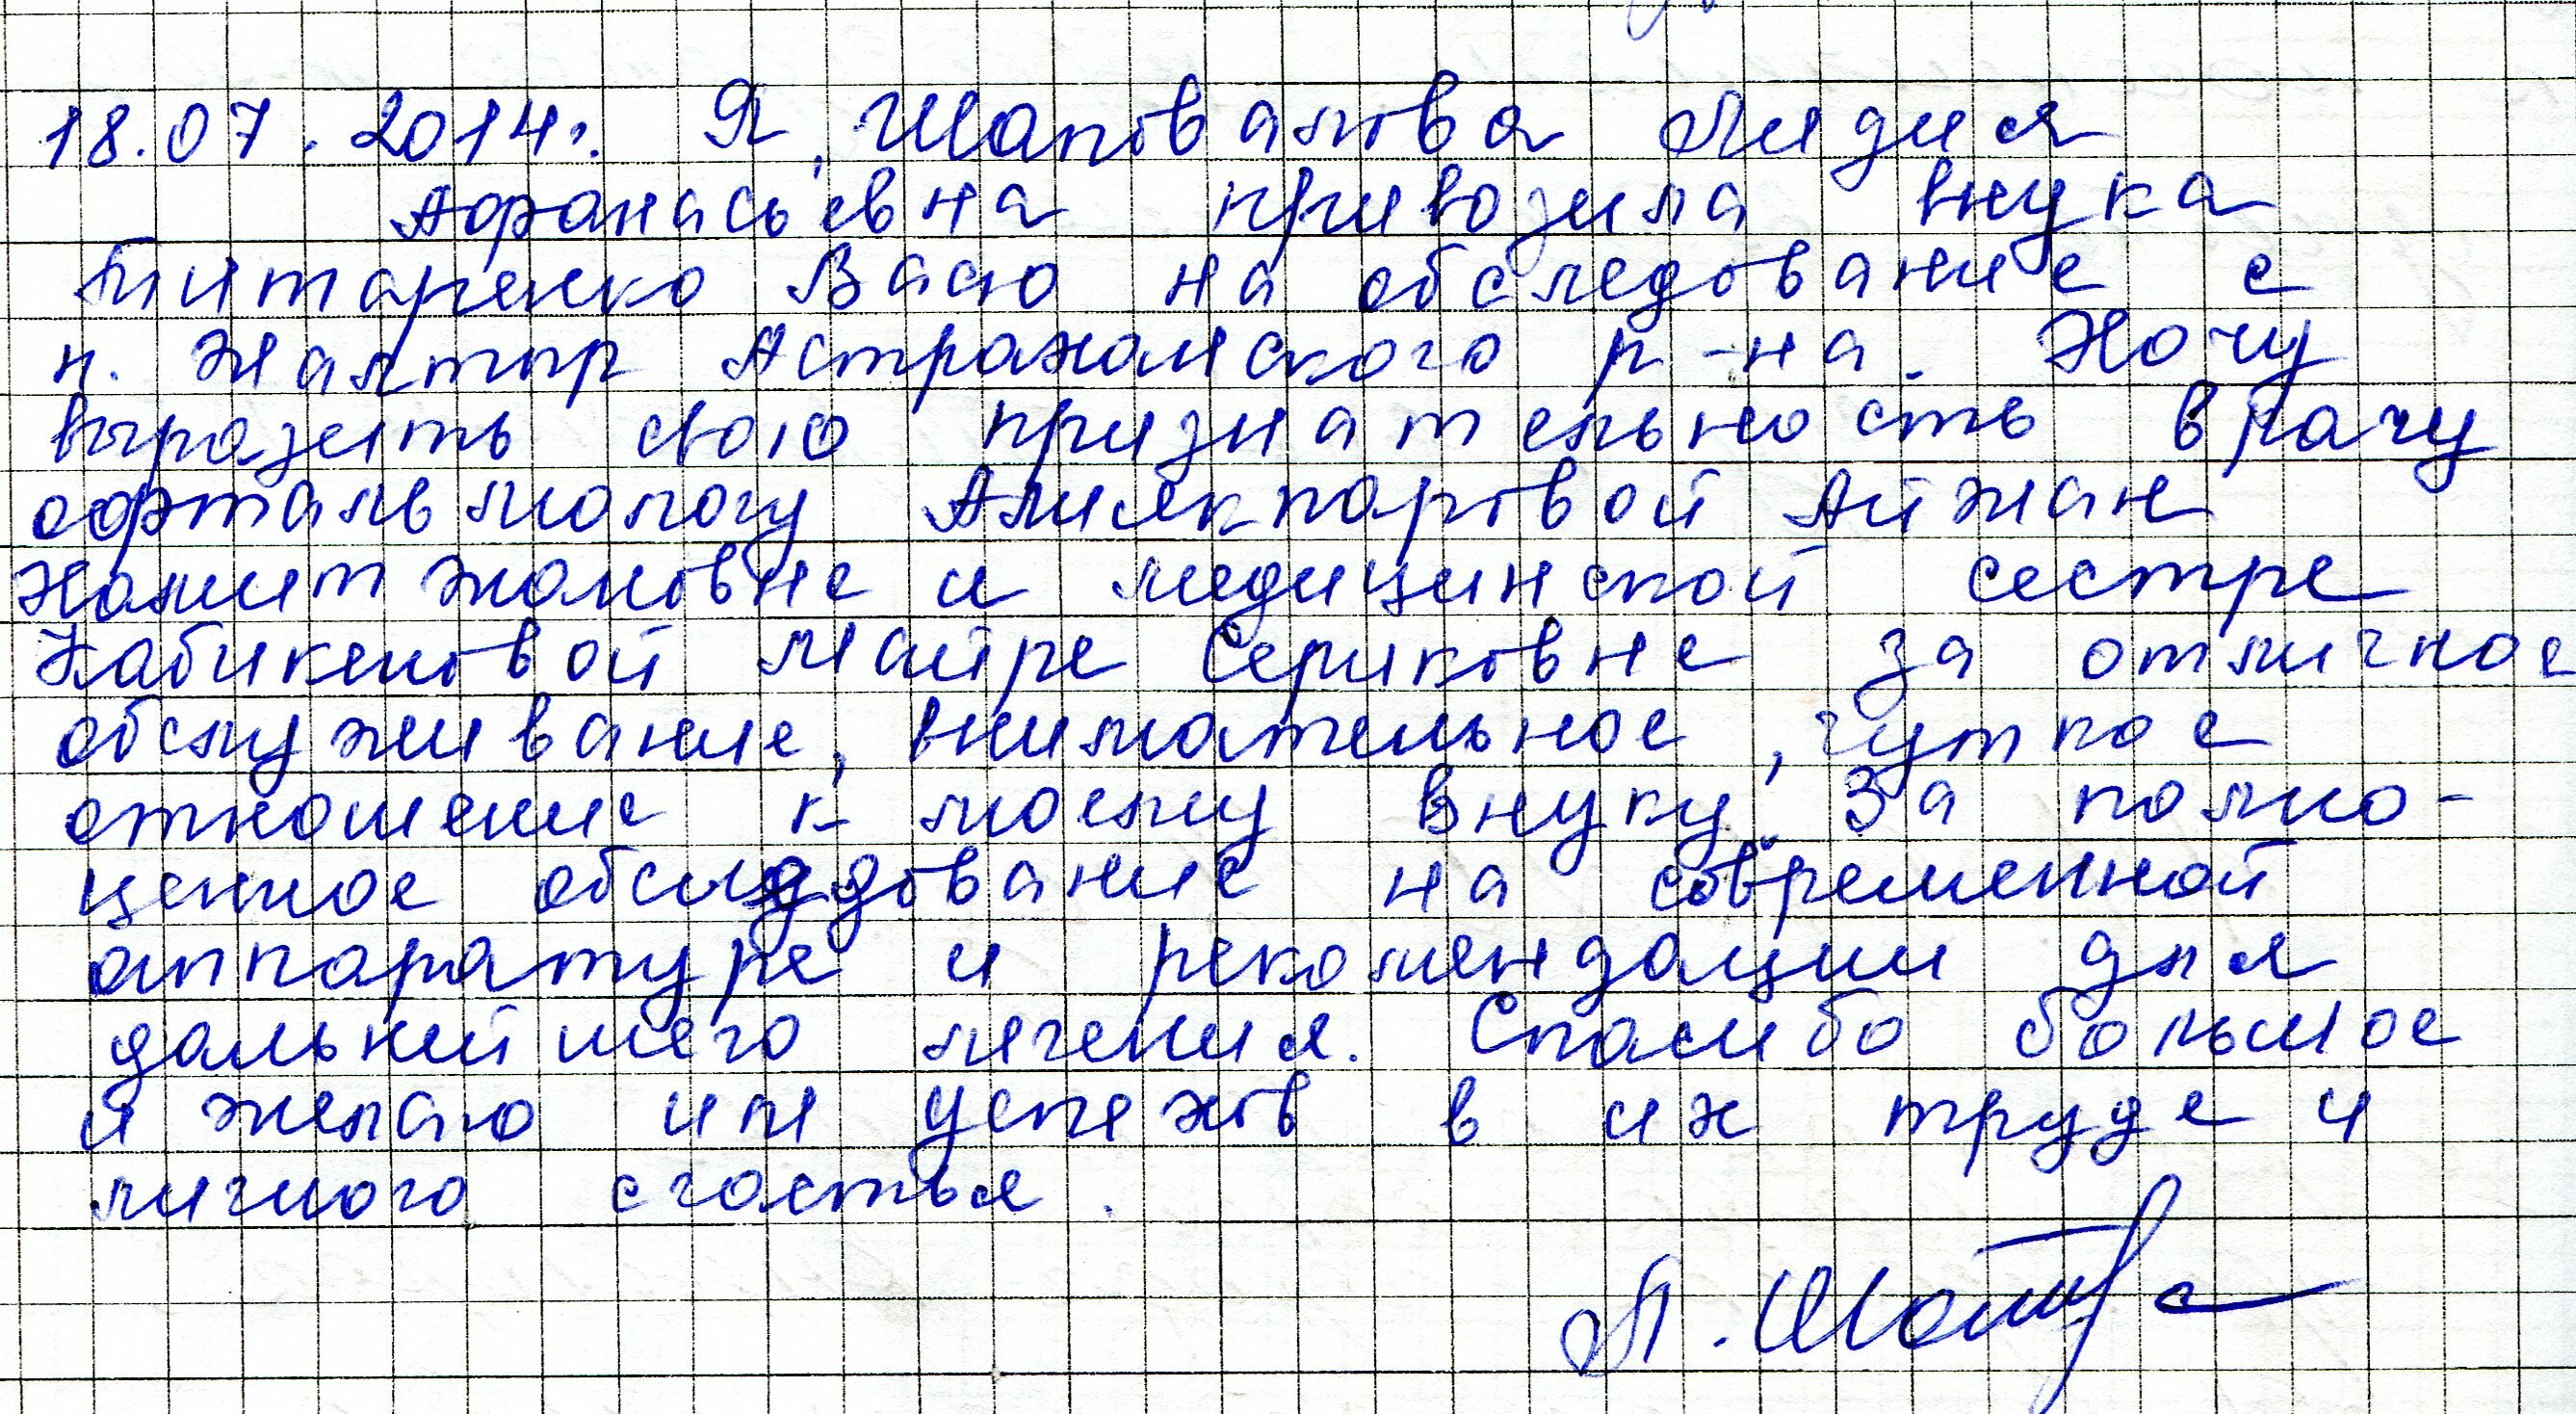 18.07.2014г. Я, Шаповалова Лидия
Афанасьевна привозила внука
Титаренко Васю на обследование с
п. Жалтыр Астраханского р-на. Хочу
выразить свою признательность врачу
офтальмологу Алиакпаровой Айжан
Хамитжановне и медицинской сестре
Кабикеновой Майре Сериковне за отличное
обслуживание, внимательное, чуткое
отношение к моему внуку. За полно-
ценное обследование на современной
аппаратуре и рекомендации для
дальнейшего лечения. Спасибо большое
и желаю им успехов в их труде и
личного счастья.
Л. Шапов